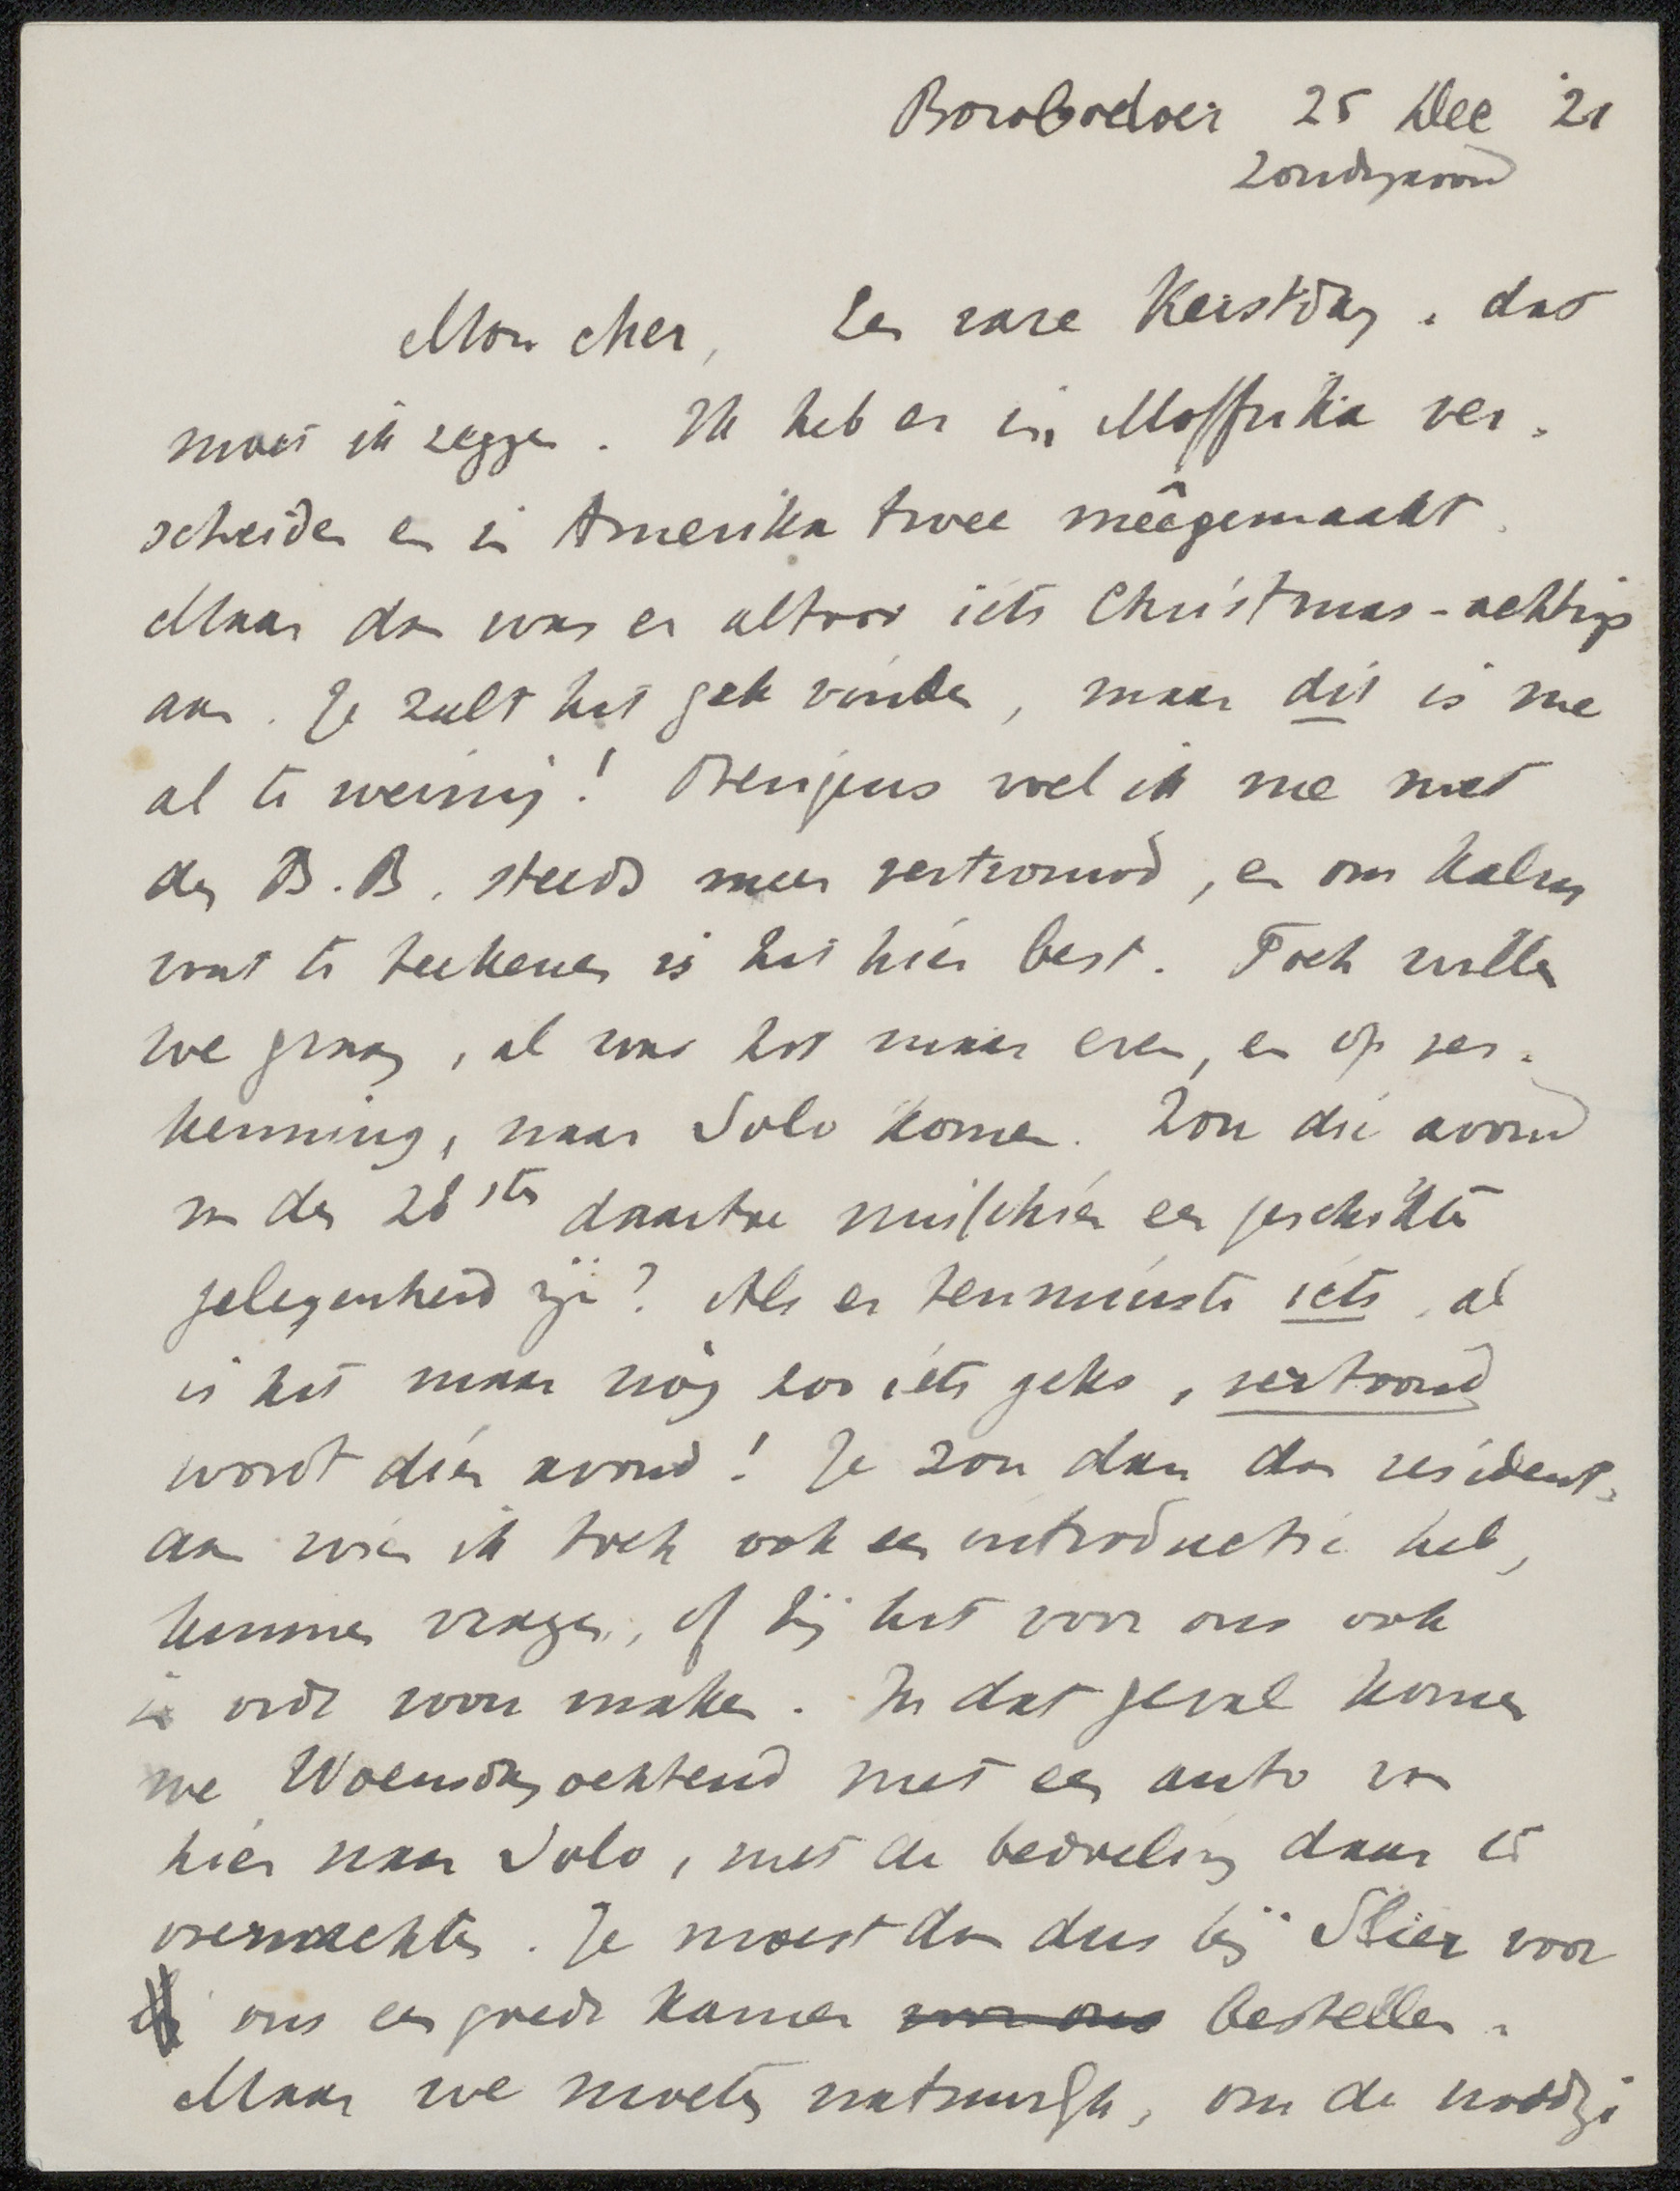 Boroboedoer 25 Dec '21
Zondagavond
Mon cher, Een rare Kerstdag, dat
moet ik zeggen. Ik heb er in Moffrika ver-
scheiden en in Amerika twee meêgemaakt.
Maar dan was er altoos iets Christmas-achtigs
aan. Je zult het gek vinden, maar dit is me
al te weinig! Overigens voel ik me met
den B.B. steeds meer vertrouwd, en om kalm
wat te teekenen is het hier best. Toch willen
we graag, al was het maar even, en op ver-
kenning, naar Solo komen. Zou die avond
van den 28sten daartoe misschien een geschikte
gelegenheid zijn? Als er tenminste iets, al
is het maar nòg zoo iets geks, vertoond
wordt dien avond! Je zou dan den resident,
aan wien ik toch ook een introductie heb,
kunnen vragen, of hij het voor ons ook
in orde wou maken. In dat geval komen
we Woensdagochtend met een auto van
hier naar Solo, met de bedoeling daar te
overnachten. Je moest dan dus bij Slier voor
ons een goede kamer voor ons bestellen.
Maar we moeten natuurlijk, om de noodi